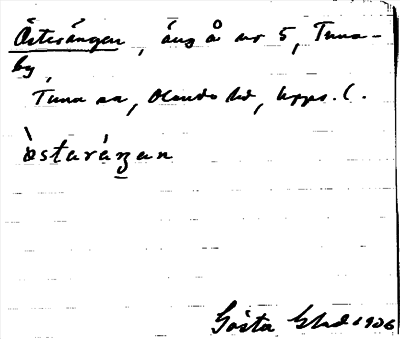 Österängen, äng å nr 5, Tuna-
by,
Tuna sn, Olands hd, Upps. l.
òstaráŋan
Gösta 1906